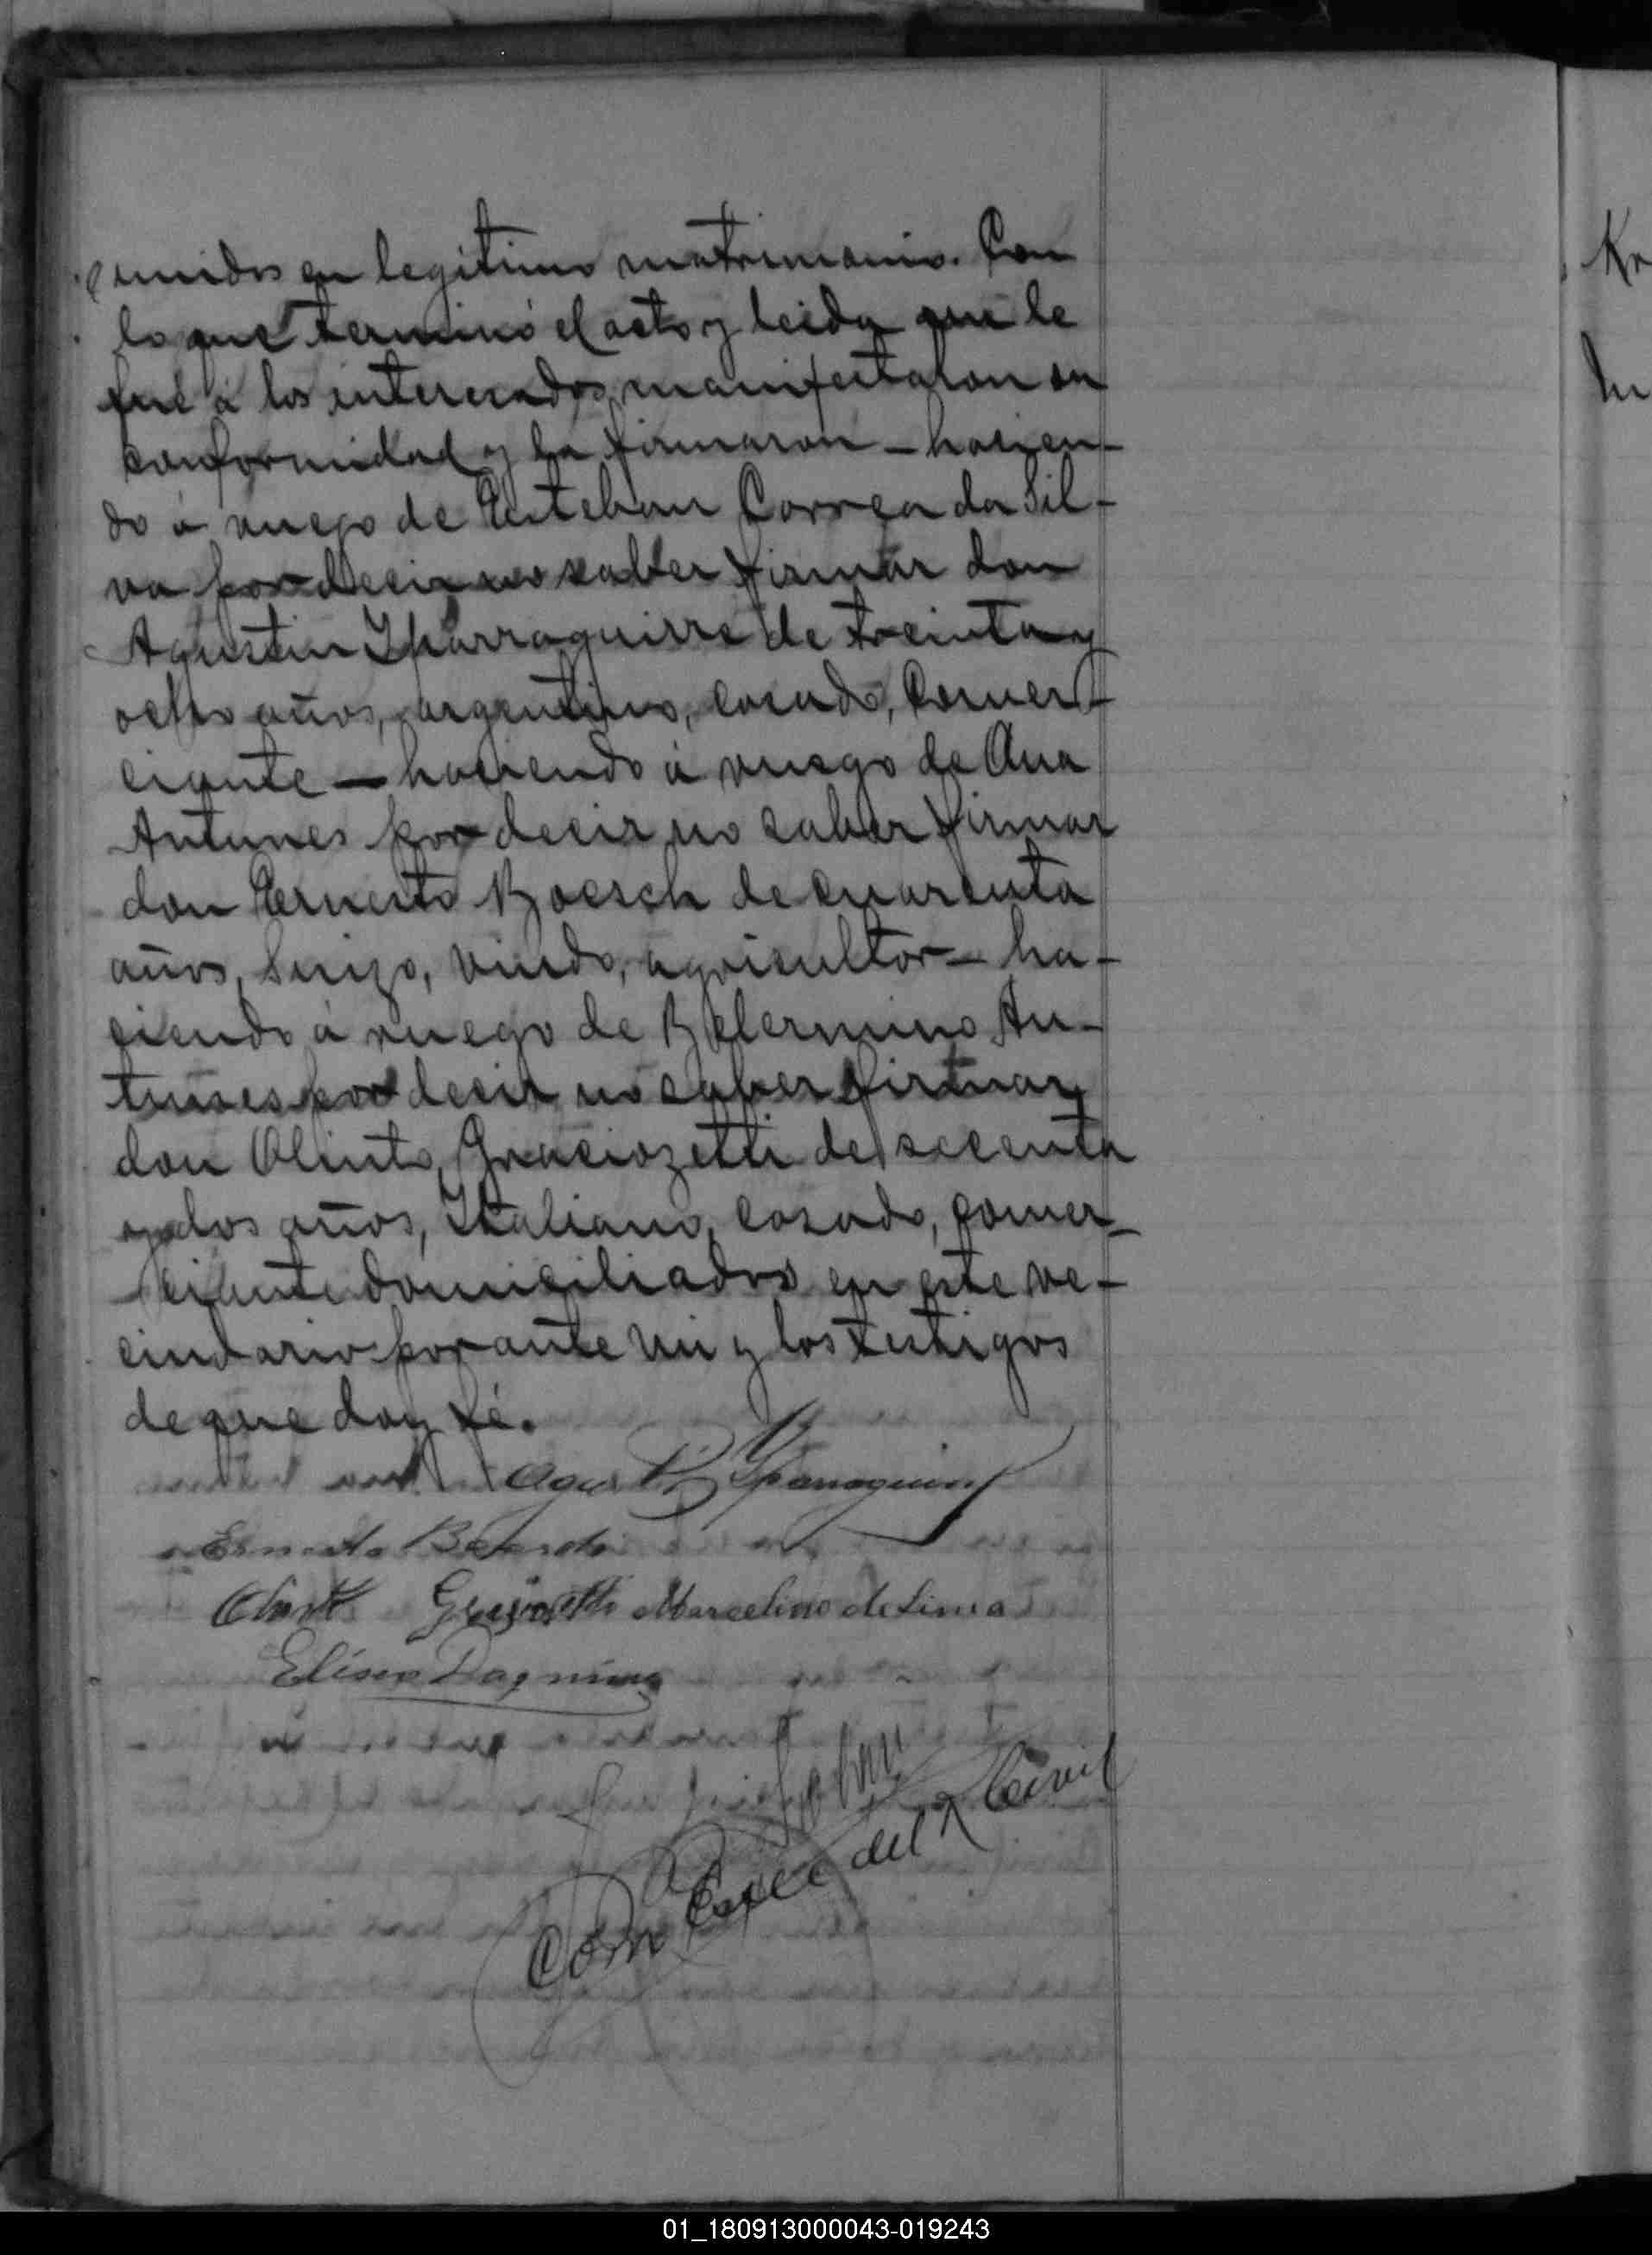 unidos en legítimo matrimonio. Con
lo que terminó el acto y leida que le
fué á los interesados, manifestaron su
conformidad y la firmaron — hacien-
do á ruego de Esteban Correa da Sil-
va por decir no saber firmar don
Agustin Yparraguirre de treinta y
ocho años, argentino, casado, comer-
ciante — haciendo á ruego de Ana
Antunes por decir no saber firmar
don Ernesto Boesch de cuarenta
años, Suizo, viudo, agricultor — ha-
ciendo á ruego de Belermino An-
tunes por decir no saber firmar
don Olinto Graciozetti de secenta
y dos años, Italiano, casado, comer-
ciante domiciliados en este ve-
cindario por ante mi y los testigos
de que doy fé.
Agustin Yparraguirre
Ernesto Boesch
Olinto Marcelino de Lima
Eliseo Dagnino
del R Civil
Kr
01_180913000043-019243